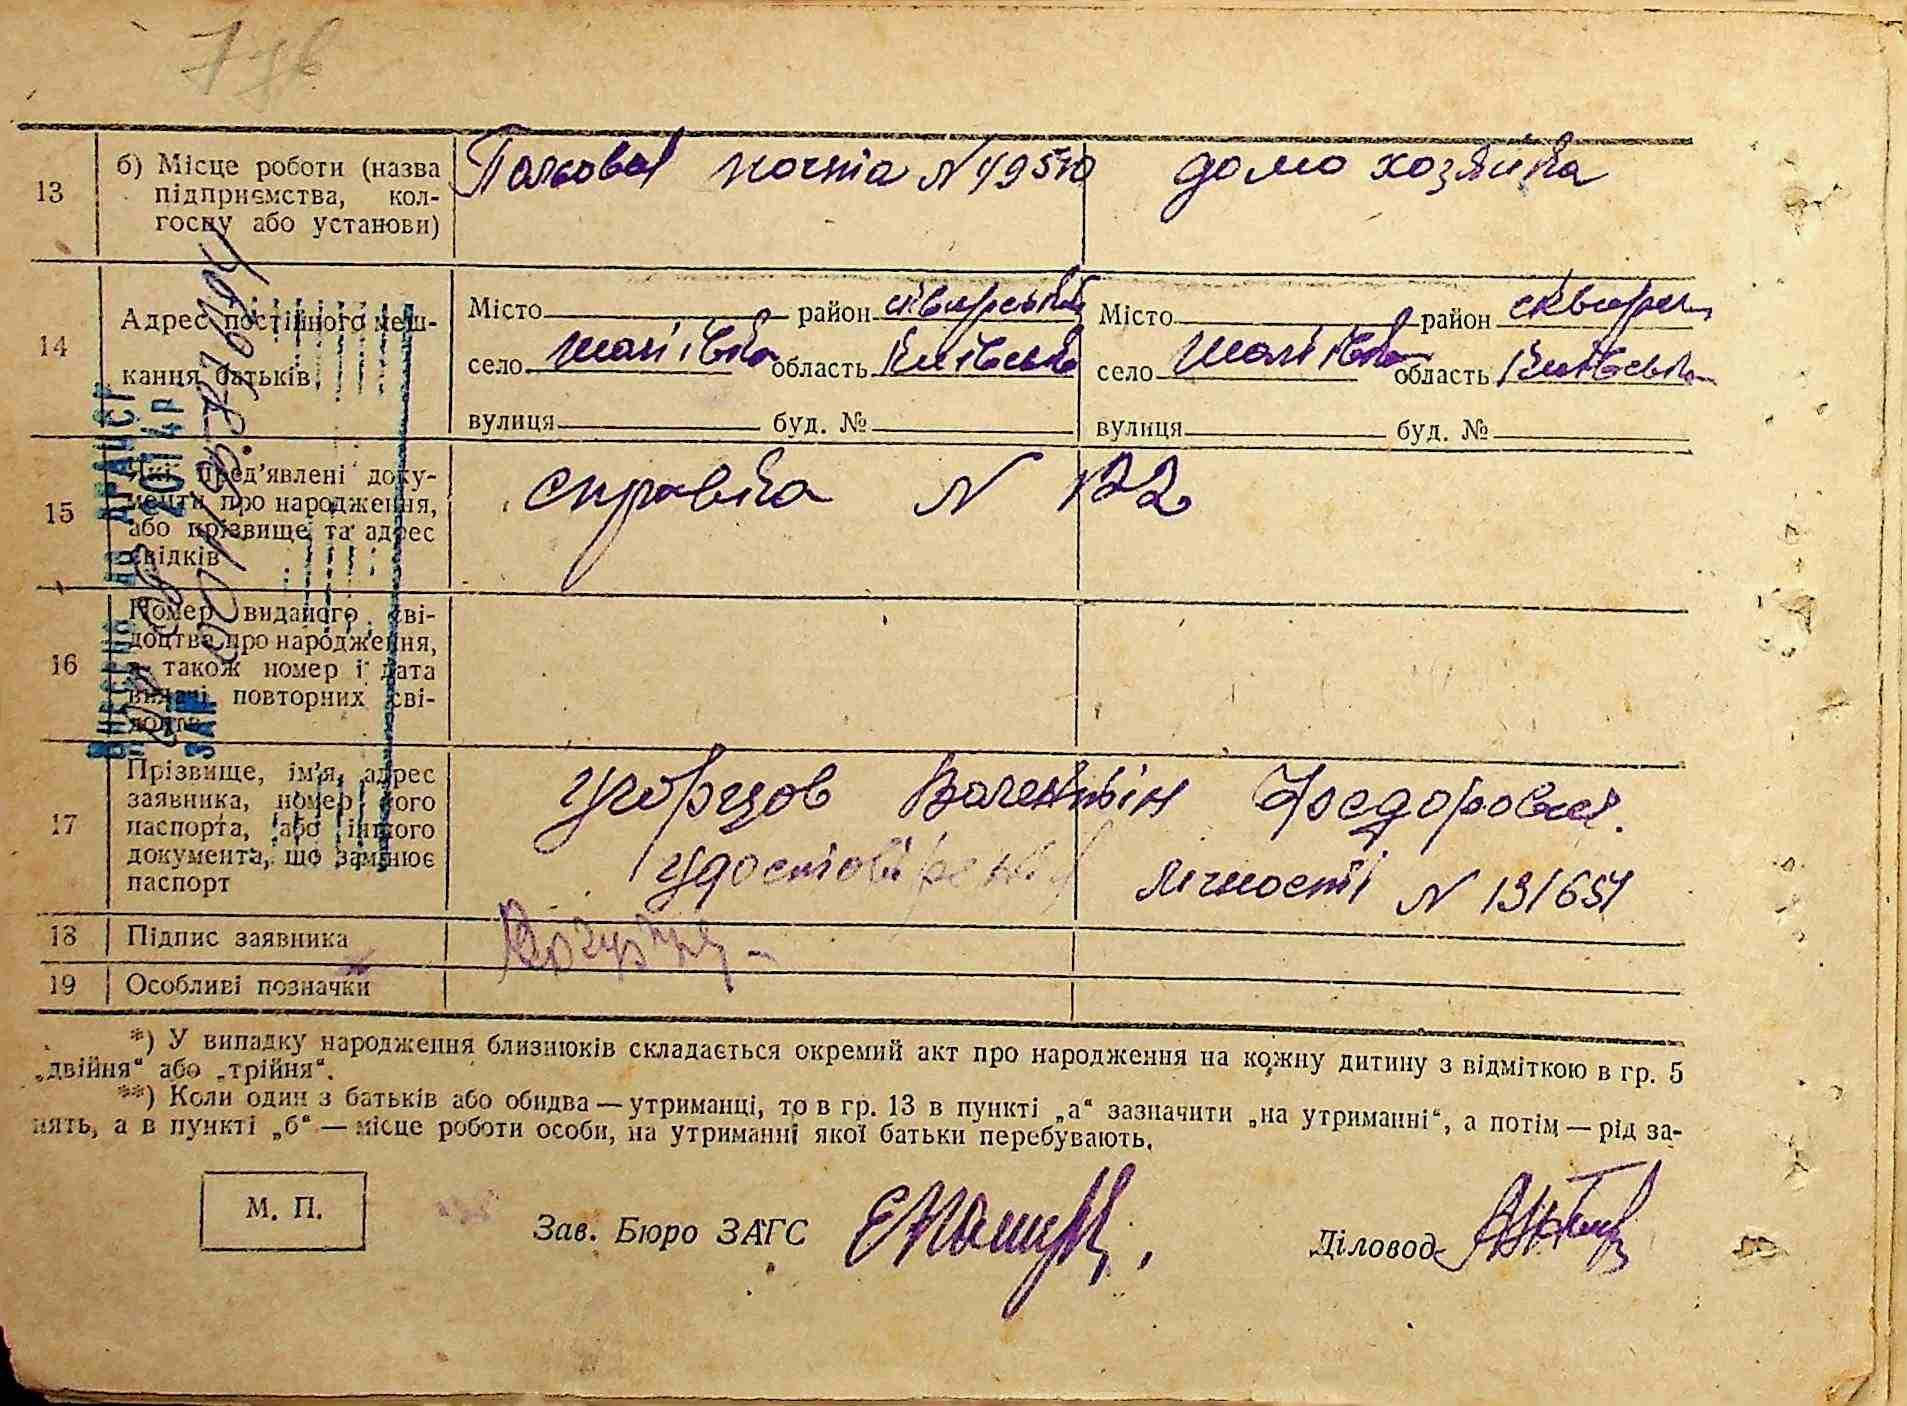 13
б) Місце роботи (назва
підприємства, кол-
госпу або установи)
Польова почта N 49510
домо хозяйка
14
Адрес постійного меш-
кання батьків
Місто район сквирський
село область Київська
вулиця буд. №
Місто район сквирс
село область Київська
вулиця буд. №
15
Які пред'явлені доку-
менти про народження,
або прізвище та адрес
свідків
справка N 122
16
Номер виданого сві-
доцтва про народження,
а також номер і дата
видачі повторних сві-
доцтв
17
Прізвище, ім'я, адрес
заявника, номер його
паспорта, або іншого
документа, що замінює
паспорт
Валентін Федорович.
удостовірення лічності N 131651
18
Підпис заявника
19
Особливі позначки
*) У випадку народження близнюків складається окремий акт про народження на кожну дитину з відміткою в гр. 5
„двійня“ або „трійня“.
**) Коли один з батьків або обидва — утриманці, то в гр. 13 в пункті „а“ зазначити „на утриманні“, а потім — рід за-
нять, а в пункті „б“ — місце роботи особи, на утриманні якої батьки перебувають.
М. П.
Зав. Бюро ЗАГС
Діловод